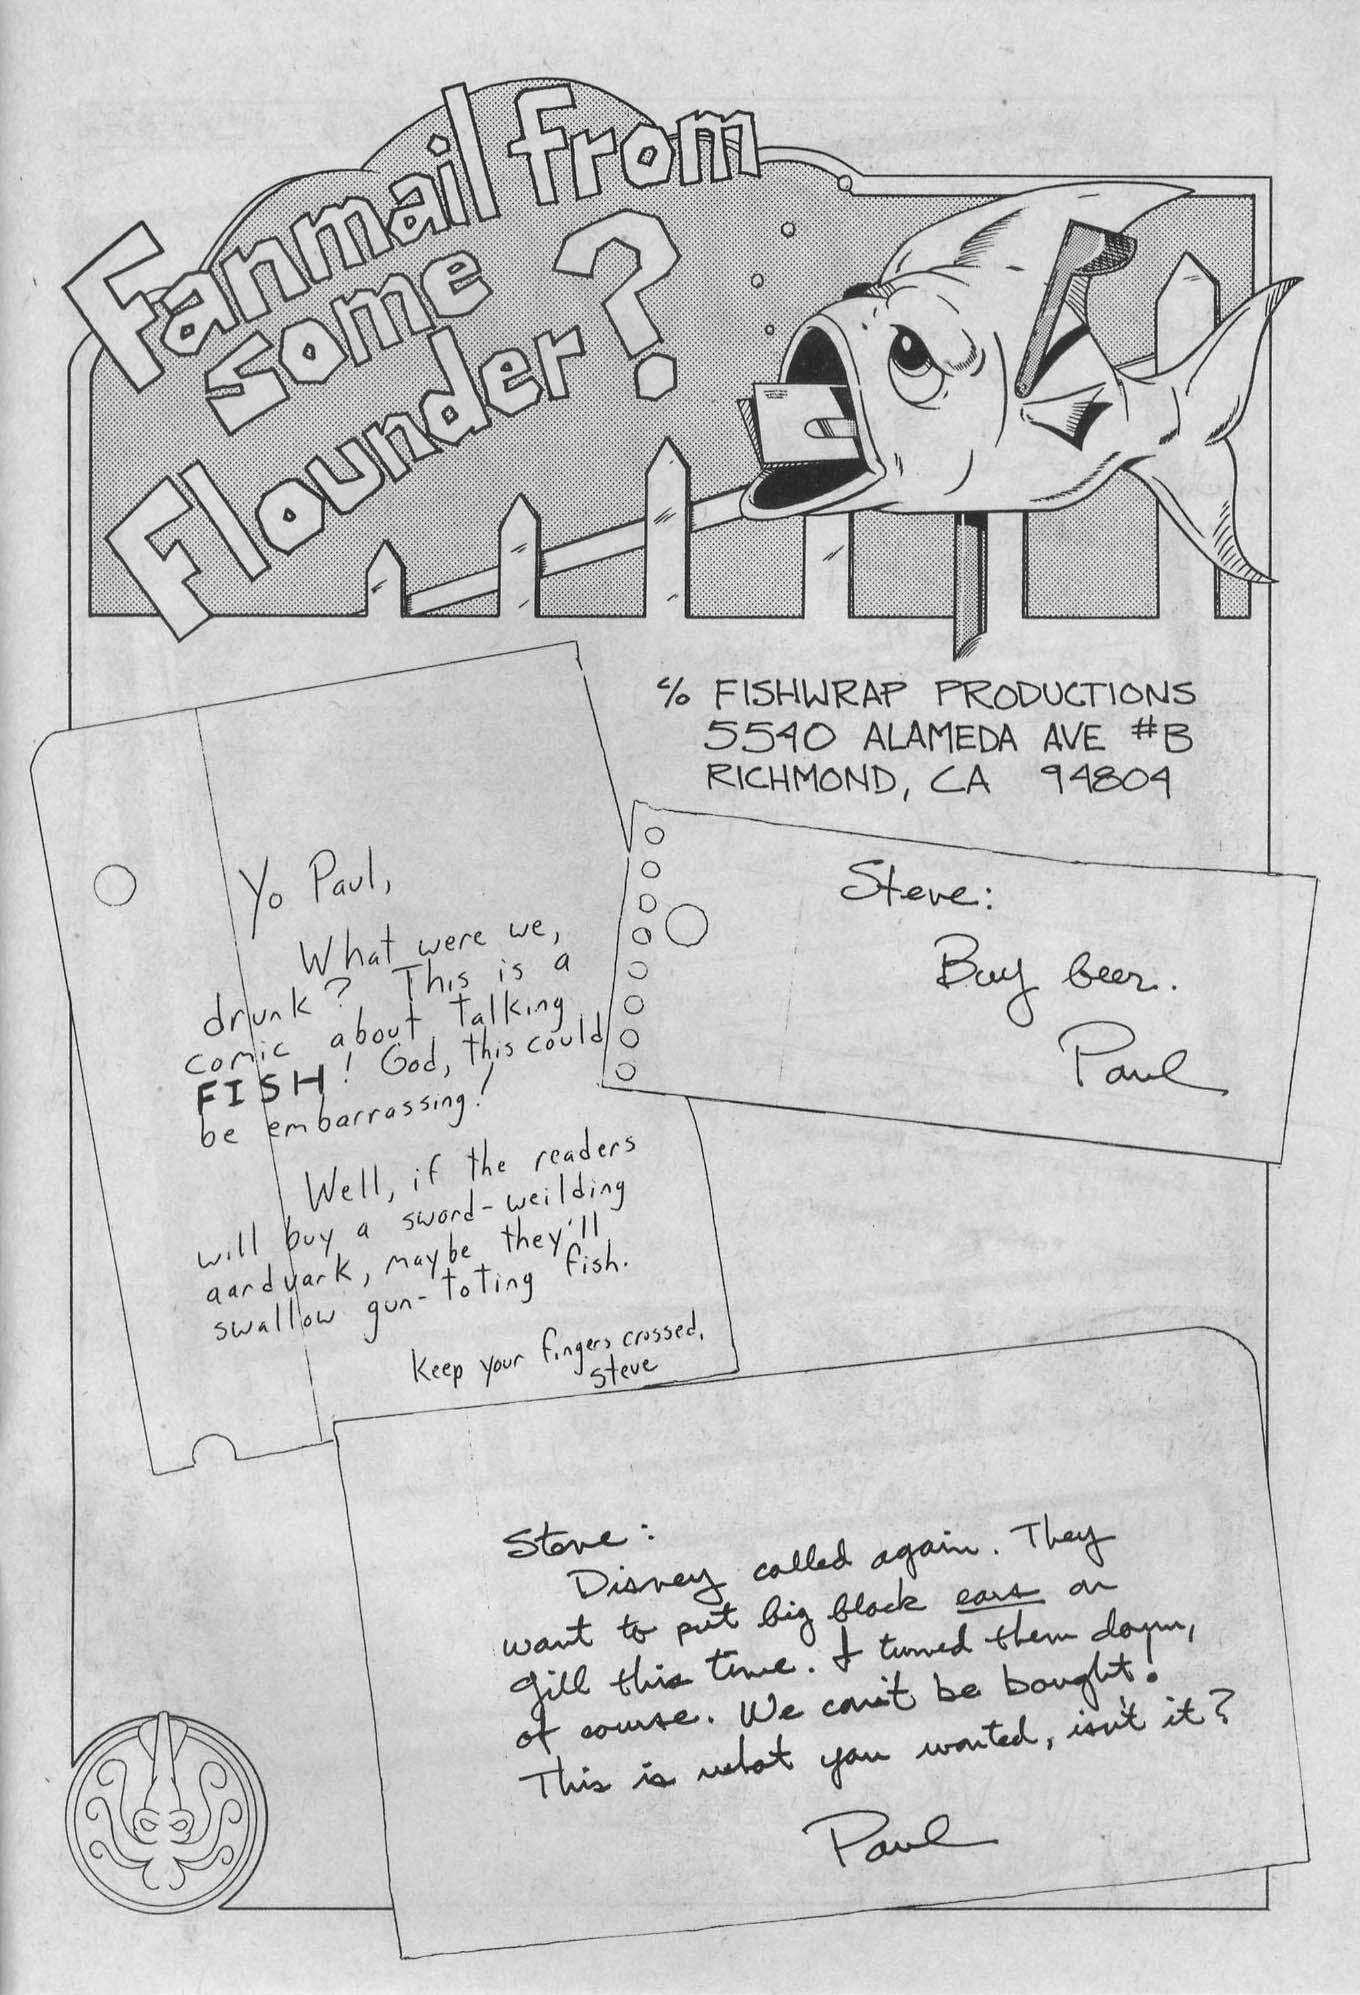 Fanmail from
some
Flounder?
c/o FISHWRAP PRODUCTIONS
5540 ALAMEDA AVE #B
RICHMOND, CA 94804
Yo Paul,
What were we,
drunk? This is a
comic about talking
FISH! God, this could
be embarrassing!
Well, if the readers
will buy a sword-weilding
aardvark, maybe they'll
swallow gun-toting fish.
Keep your fingers crossed,
Steve
Steve:
Buy beer.
Paul
Steve:
Disney called again. They
want to put big black ears on
Gill this time. I turned them down,
of course. We can't be bought!
This is what you wanted, isn't it?
Paul